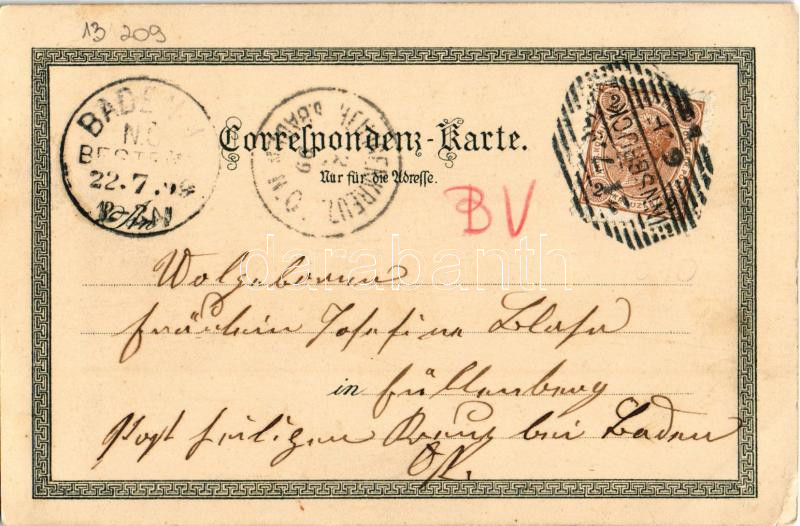 13 209
BADEN
N.Ö.
BESTELLT
22.7.99
Correspondenz-Karte.
Nur für die Adresse.
HEILIGENKREUZ
b. BADEN
N.Ö.
99
INNSBRUCK
BV
Wolgeboren
Fräulein Josefine Blaha
in Füllenberg
Post heiligen Kreuz bei Baden
darabanth